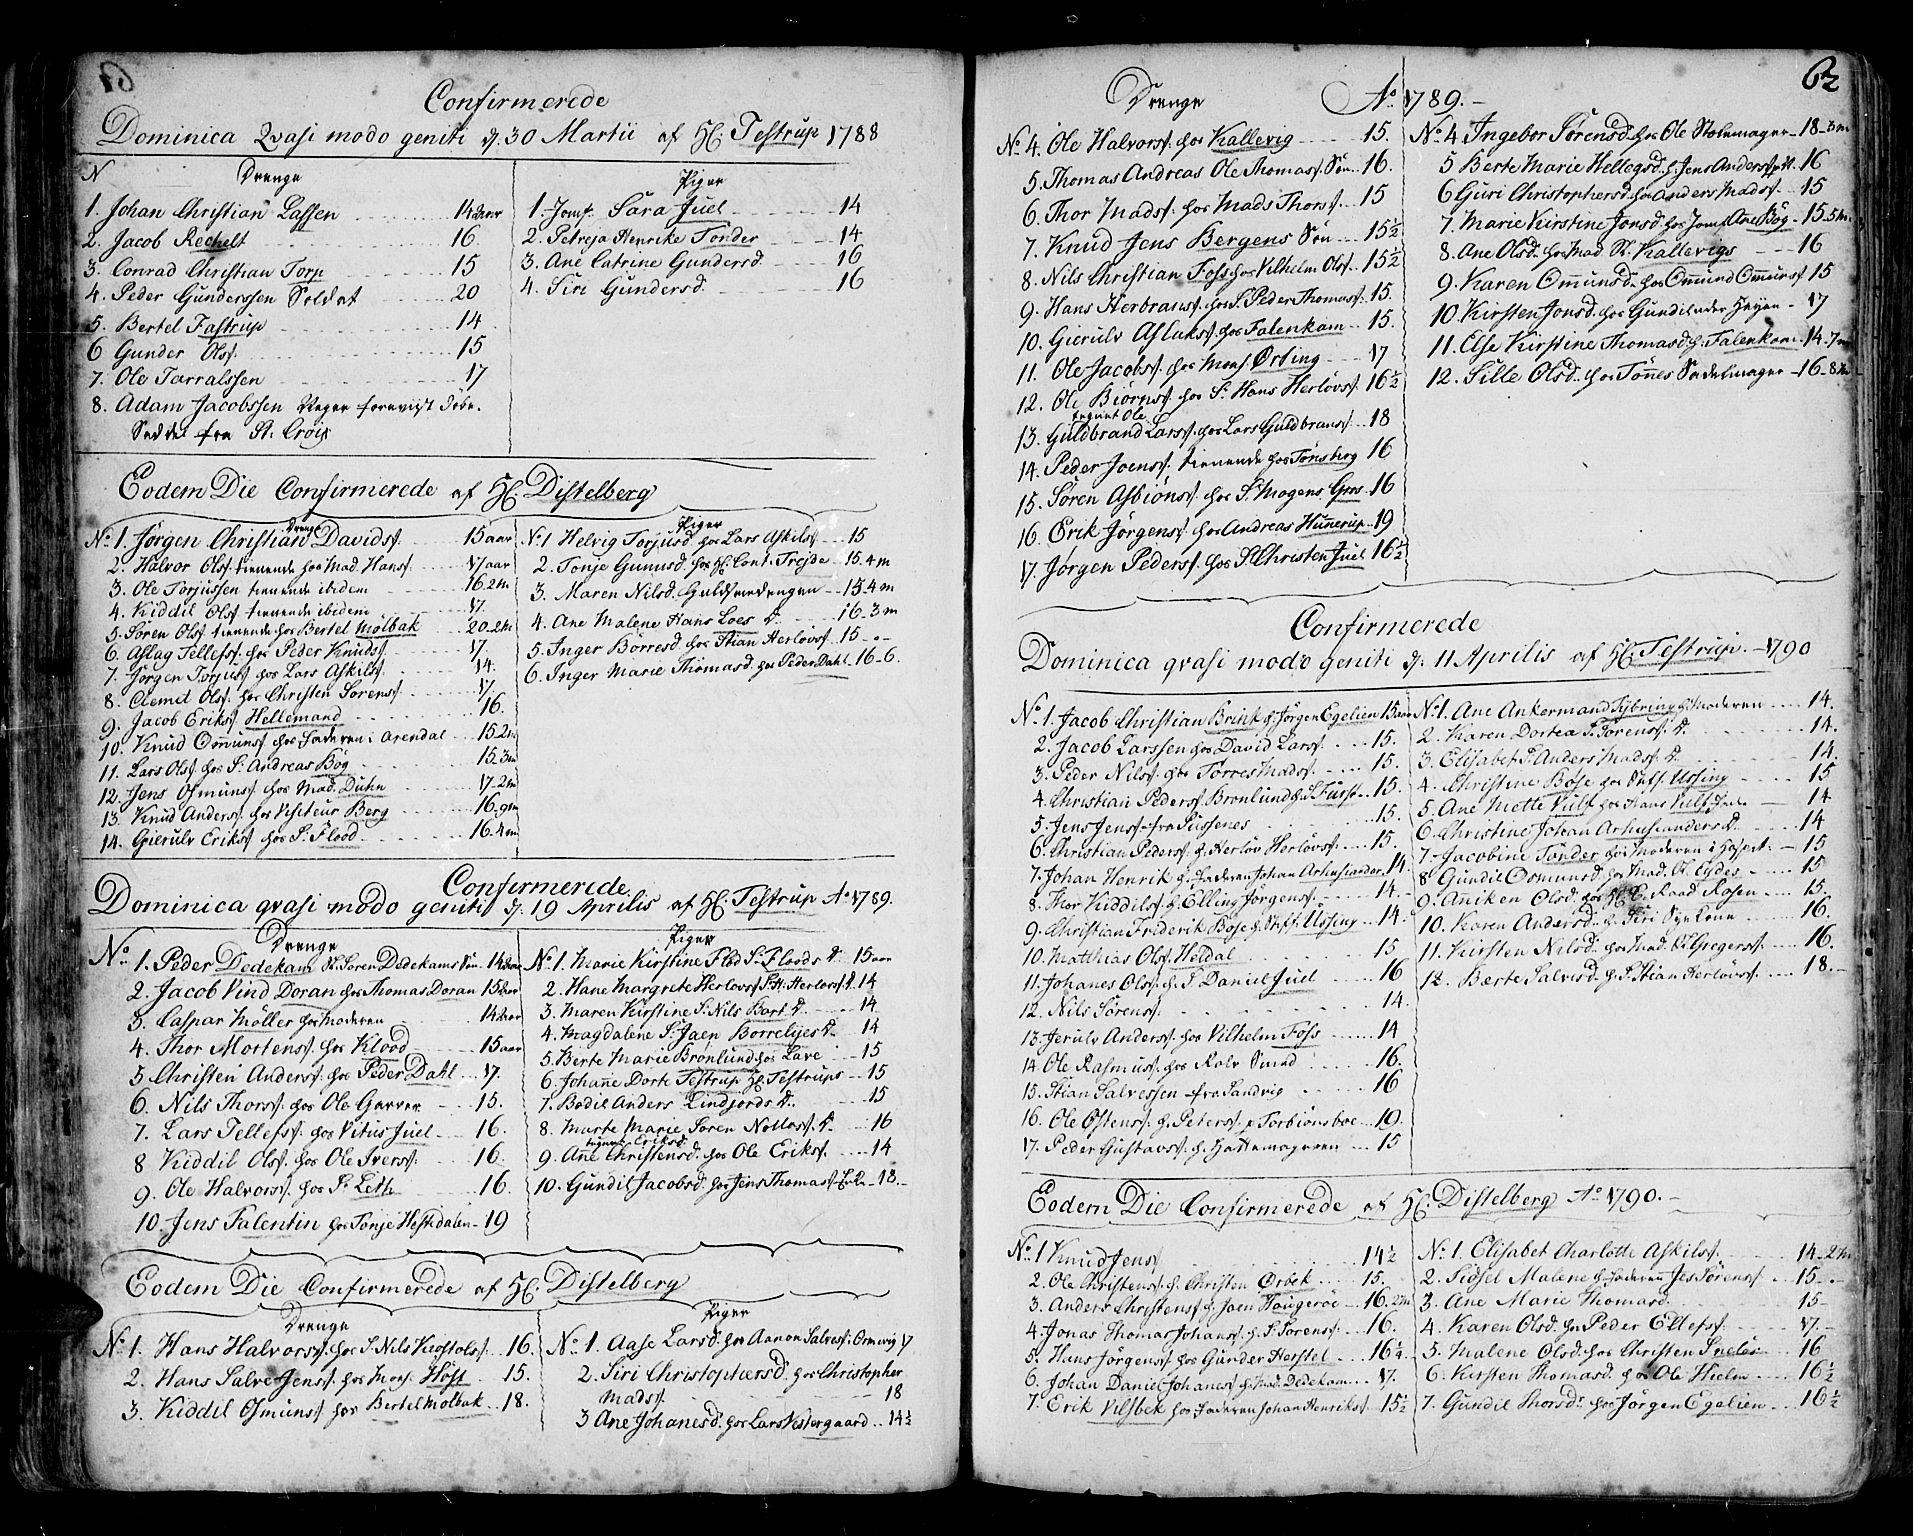 61
Confirmerede
Dominica Qvasi modo geniti d. 30 Martii af H. Testrup 1788
N Drenge
1. Johan Christian Lassen 14 aar
2. Jacob Rechelt 16.
3. Conrad Christian Torp 15
4. Peder Gunderssen Soldat 20
5. Bertel Fastrup 14
6 Gunder Ols. 15
7. Ole Tarralssen 17
8. Adam Jacobssen Neger
fra St. Croix
Piger
1. Jomf. Sara Juel 14
2. Petreja Henrike Tonder 14
3. Ane Catrine Gundersd. 16
4. Siri Gundersd. 16
Eodem Die Confirmerede af H. Distelberg
Drenge
No. 1. Jørgen Christian Davids. 15 aar
2. Halvor Ols. tienende hos Mad. Hans. 17 aar
3. Ole Torjussen tienende ibidem 16.2m
4. Kiddil Ols. tienende ibidem 17.
5. Søren Ols. tienende hos Bertel Mølbak 20-2m
6. Aslag Tellefs. hos Peder Knuds. 17.
7. Jørgen Torjus. hos Lars Askils. 14.
8. Clemet Ols. hos Christen Sørens. 17.
9. Jacob Eriks. Hellemand 16.
10. Knud Omuns. hos Faderen i Arendal 15.2m
11. Lars Ols. hos S. Andreas Bøg 15.3m
12. Jens Osmuns. hos Mad. Duhn 17-2m
13. Knud Anders. hos Visiteur Berg 16.9m
14. Gierulv Eriks. hos S. Flood 16.4m
Piger
No. 1 Helvig Torjusd. hos Lars Askils. 15
2. Tonje Gunusd. hos H. Cont. Trejde 15.4m
3. Maren Nilsd. 15-4m
4. Ane Malene Hans Loes D. 16-3m
5. Inger Børresd. hos Stian Herløvs. 15
6. Inger Marie Thomasd. hos Peder Dahl 16-6.
Confirmerede
Dominica qvasi modo geniti d. 19 Aprilis af H. Testrup Ao. 1789.
Drenge
No. 1. Peder Dedekam Sr. Søren Dedekams Søn 14 aar
2. Jacob Vind Doran hos Thomas Doran 15 aar
3. Caspar Møller hos Moderen 14 aar
4. Thor Mortens. hos Klood 15 aar
5 Christen Anders. hos Peder Dahl 17.
6. Nils Thors. hos Ole Garver 15.
7. Lars Tellefs. hos Vitus Juel 16.
8 Kiddil Ols. hos Ole Ivers. 16.
9. Ole Halvors. hos Sr. Leth 16.
10. Jens Falentin hos Tonje Hestedalen 19
Piger
No. 1. Marie Kirstine Flod S. Floods D. 15 aar
2. Hane Margrete Herløvs. S. H. Herløvs. D. 14
3. Maren Kirstine S. Nils Bart D. 14
4. Magdalene S. Jaen Borreljes D. 14
5. Berte Marie Brønlund hos Lave 15
6. Johane Dorte Testrup H. Testrups 15
7. Bodil Anders Lindjords D. 15
8. Marte Marie Søren Nollos. D. 16
Eriksd.
9. Ane Christensd. hos Ole Eriks. 14
10. Gundil Jacobsd. hos Jens Thomas. 18.
Eodem Die Confirmerede af H. Distelberg
Drenge
No. 1. Hans Halvors. hos S. Nils Kiostols. 16.
2. Hans Salve Jens. hos Mons. Høst 15.
3. Kiddil Osmuns. hos Bertel Mølbak 18.
Piger
No. 1. Aase Larsd. hos Aanon Salves. Ormvig 17
2. Siri Christophersd. hos Christopher
Mads. 18
3 Ane Johanesd. hos Lars Vestergaard 14½
62
Drenge Ao. 1789.
No. 4. Ole Halvors. hos Kallevig 15.
5. Thomas Andreas Ole Thomas. Søn 16.
6. Thor Mads. hos Mads Thors. 15
7. Knud Jens Bergens Søn 15½
8. Nils Christian Foss hos Vilhelm Ols. 15½
9. Hans Herbrans. hos S. Peder Thomas. 15.
10. Gierulv Aslaks. hos Falenkam 15.
11. Ole Jacobs. hos Mons. Ørting 17
12. Ole Biørns. hos Sr. Hans Herløvs. 16½
egent. Ole
13. Guldbrand Lars. hos Lars Guldbrans. 18
14. Peder Joens. tienende hos Tønsberg 16
15. Søren Asbiøns. hos S. Mogens Gros 16
16. Erik Jørgens. hos Andreas Hunerup 19
17. Jørgen Peders. hos S. Christen Juel 16½
No. 4 Ingebor Sørensd. hos Ole Stolemager 18-3m
5 Berte Marie Hellegsd. h. Jens Anders. 16
6 Guri Christophersd. hos Anders Mads. 15
7. Marie Kirstine Jonsd. hos Jomf. Ane Bøg 15.5m
8. Ane Olsd. hos Mad. Sl. Kallevigs 16
9. Karen Omunsd. hos Omund Omuns. 15
10. Kirsten Jonsd. hos Gundil 17
11. Else Kirstine Thomasd. h. Falenkam 14-7m
12. Sille Olsd. hos Tønes Sadelmager 16-8m
Confirmerede
Dominica qvasi modo geniti d. 11 Aprilis af H. Testrup. 1790
No. 1. Jacob Christian Brink h. Jørgen Egelien 15 aar
2. Jacob Larssen hos David Lars. 15.
3. Peder Nils. hos Torres Mads. 15.
4. Christian Peders. Brønlund h. S. Furst 15.
5. Jens Jens. fra Pussenes 15.
6. Christian Peders. h. Herløv Herløvs. 15.
7. Johan Henrik h. Faderen Johan Arhusiander 14
8. Thor Kiddils. h. Elling Jørgens. 14.
9. Christian Friderik Bose h. Ussing 14.
10. Matthias Ols. Heldal 15
11. Johanes Ols. h. S. Daniel Juel 16
12. Nils Sørens. 14.
13. Jerulv Anders. hos Vilhelm Foss 14
14. Ole Rasmus. hos Ralv Smed 16.
15. Stian Salvessen fra Sandvig 16
16. Ole Ostens. h. Peters. p. Torbiønsboe 19.
17. Peder Gustavs. h. Hattemageren 15
No. 1. Ane Ankermand Fybring h. Moderen 14.
2. Karen Dortea S. Sørens. D. 14.
3. Elisabet S. Anders Mads. D. 14
4. Christine Bose hos Ussing 15
5. Ane Mette Vulf hos Hans Vulf 14
6. Christine Johan Arhusianders D. 14
7. Jacobine Tønder hos Moderen i 15
8 Gundil Osmunsd. hos Mad. Sl. Eydes 15
9. Aniken Olsd. hos H. E. Raad Rosen 15.
10. Karen Andersd. h. Siri 16.
11. Kirsten Nilsd. hos Mad. Gregers. 16.
12. Berte Salvesd. h. S. Stian Herløvs. 18.
Eodem Die Confirmerede af H. Distelberg Ao. 1790.
No. 1 Knud Jens. 14½
2. Ole Christens. h. Christen Ørbek 15.
3. Anders Christens. h. Joen Haugerøe 16. 2m
4. Jonas Thomas Johans. h. S. Sørens. 16.
5. Hans Jørgens. hos Gunder Herstel 16¼
6. Johan Daniel Johanes. h. Mad. Dedekam 17.
7. Erik Vilsbek hos Faderen Johan Henriks. 15½
No. 1. Elisabet Charlotte Askils. 14-2m
2. Sidsel Malene h. Faderen Jes Sørens. 15
3. Ane Marie Thomasd. 15
4. Karen Olsd. hos Peder Ellefs. 17.
5. Malene Olsd. hos Christen 16
6. Kirsten Thomasd. hos Ole Hielm 16½
7. Gundil Thorsd. hos Jørgen Egelien 16½